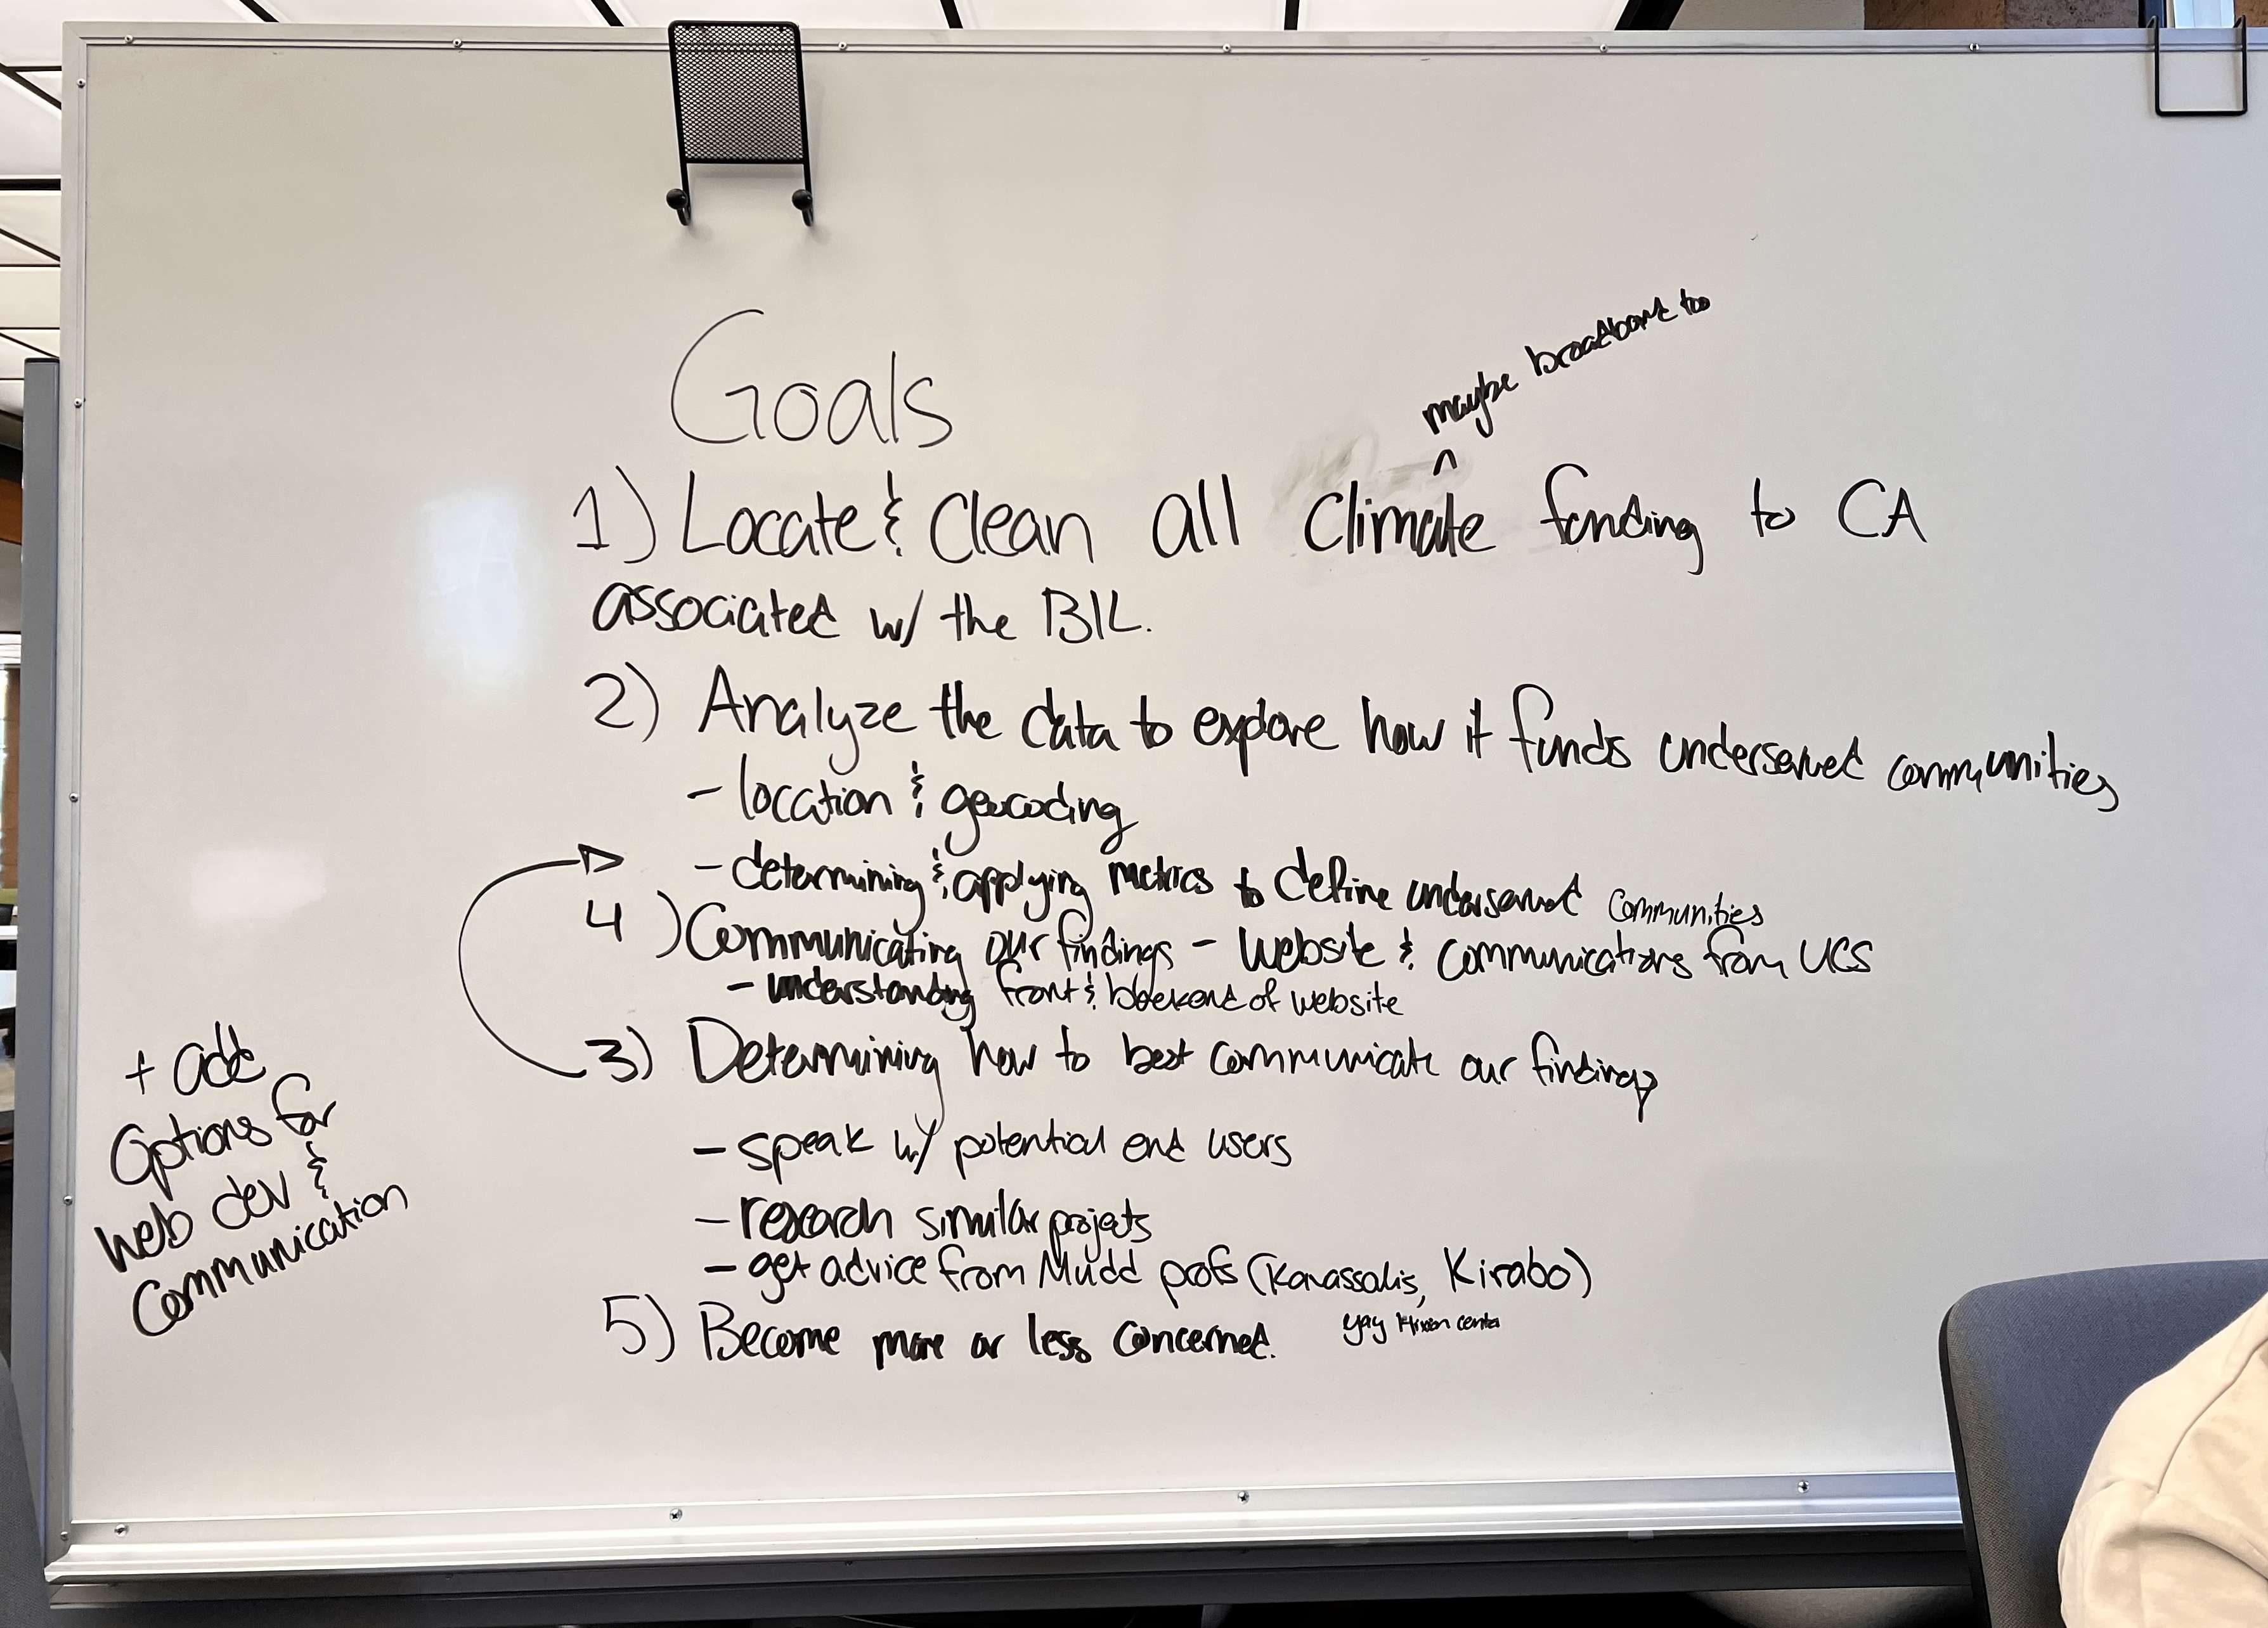 Goals
maybe broadband too
^
1) Locate & clean all climate funding to CA
associated w/ the BIL.
2) Analyze the data to explore how it funds underserved communities
- location & geocoding
- determining & applying metrics to define underserved communities
4) Communicating our findings - website & communications from UCS
- understanding front & backend of website
3) Determining how to best communicate our findings
- speak w/ potential end users
- research similar projects
- get advice from Mudd profs (Kavassalis, Kirabo)
5) Become more or less concerned.
yay Hixon center
+ add
options for
web dev &
communication